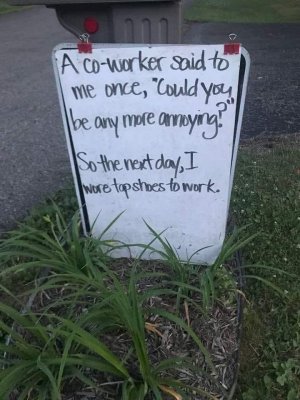 A co-worker said to
me once, "Could you
be any more annoying?"
So the next day, I
wore tap shoes to work.